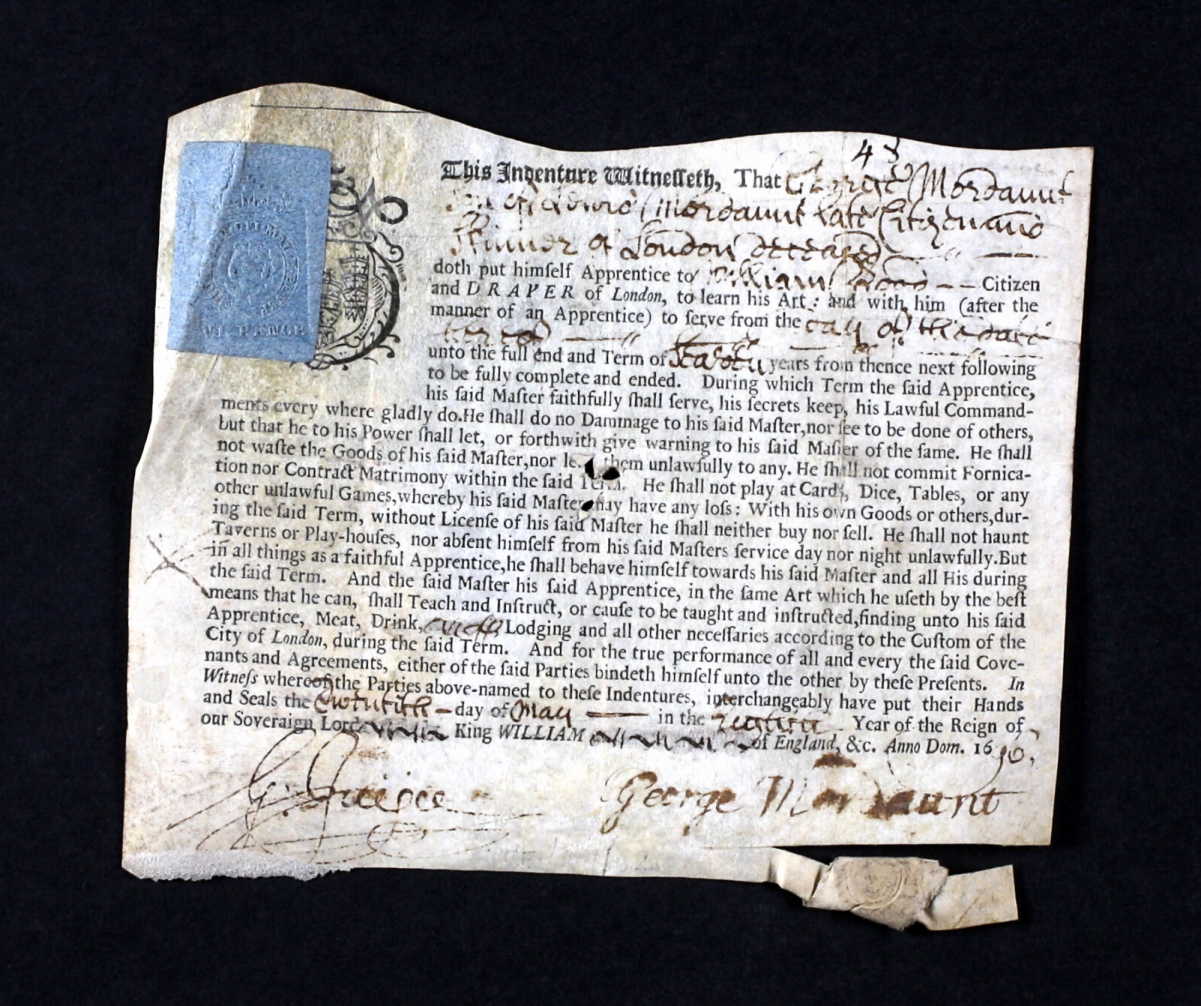 48
This Indenture Witnesseth, That George Mordaunt
Son of Lewis Mordaunt late Citizen and
Skinner of London deceased
doth put himself Apprentice to William Wood Citizen
and DRAPER of London, to learn his Art: and with him (after the
manner of an Apprentice) to serve from the day of the date
hereof
unto the full end and Term of years from thence next following
to be fully complete and ended. During which Term the said Apprentice,
his said Master faithfully shall serve, his secrets keep, his Lawful Command-
ments every where gladly do. He shall do no Dammage to his said Master, nor see to be done of others,
but that he to his Power shall let, or forthwith give warning to his said Master of the same. He shall
not waste the Goods of his said Master, nor lend them unlawfully to any. He shall not commit Fornica-
tion nor Contract Matrimony within the said Term. He shall not play at Cards, Dice, Tables, or any
other unlawful Games, whereby his said Master may have any loss: With his own Goods or others, dur-
ing the said Term, without License of his said Master he shall neither buy nor sell. He shall not haunt
Taverns or Play-houses, nor absent himself from his said Masters service day nor night unlawfully. But
in all things as a faithful Apprentice, he shall behave himself towards his said Master and all His during
the said Term. And the said Master his said Apprentice, in the same Art which he useth by the best
means that he can, shall Teach and Instruct, or cause to be taught and instructed, finding unto his said
Apprentice, Meat, Drink, Lodging and all other necessaries according to the Custom of the
City of London, during the said Term. And for the true performance of all and every the said Cove-
nants and Agreements, either of the said Parties bindeth himself unto the other by these Presents. In
Witness whereof the Parties above-named to these Indentures, interchangeably have put their Hands
and Seals the Twentieth day of May in the Year of the Reign of
our Soveraign Lord King WILLIAM of England, &c. Anno Dom. 1696.
George Mordaunt
VI PENCE